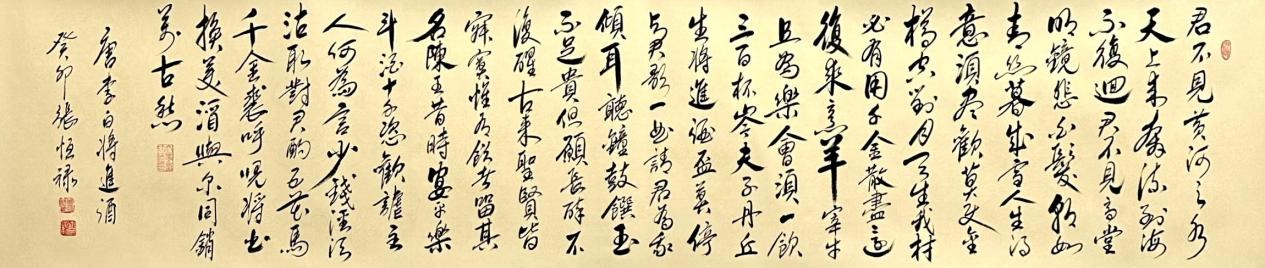 君不見黃河之水
天上來奔流到海
不復迴君不見高堂
明鏡悲白髮朝如
青絲暮成雪人生得
意須盡歡莫使金
樽空對月天生我材
必有用千金散盡還
復來烹羊宰牛
且為樂會須一飲
三百杯岑夫子丹丘
生將進酒盃莫停
與君歌一曲請君為我
傾耳聽鐘鼓饌玉
不足貴但願長醉不
復醒古來聖賢皆
寂寞惟有飲者留其
名陳王昔時宴平樂
斗酒十千恣歡謔主
人何為言少錢逕須
沽取對君酌五花馬
千金裘呼兒將出
換美酒與爾同銷
萬古愁
唐李白將進酒
癸卯張恒祿